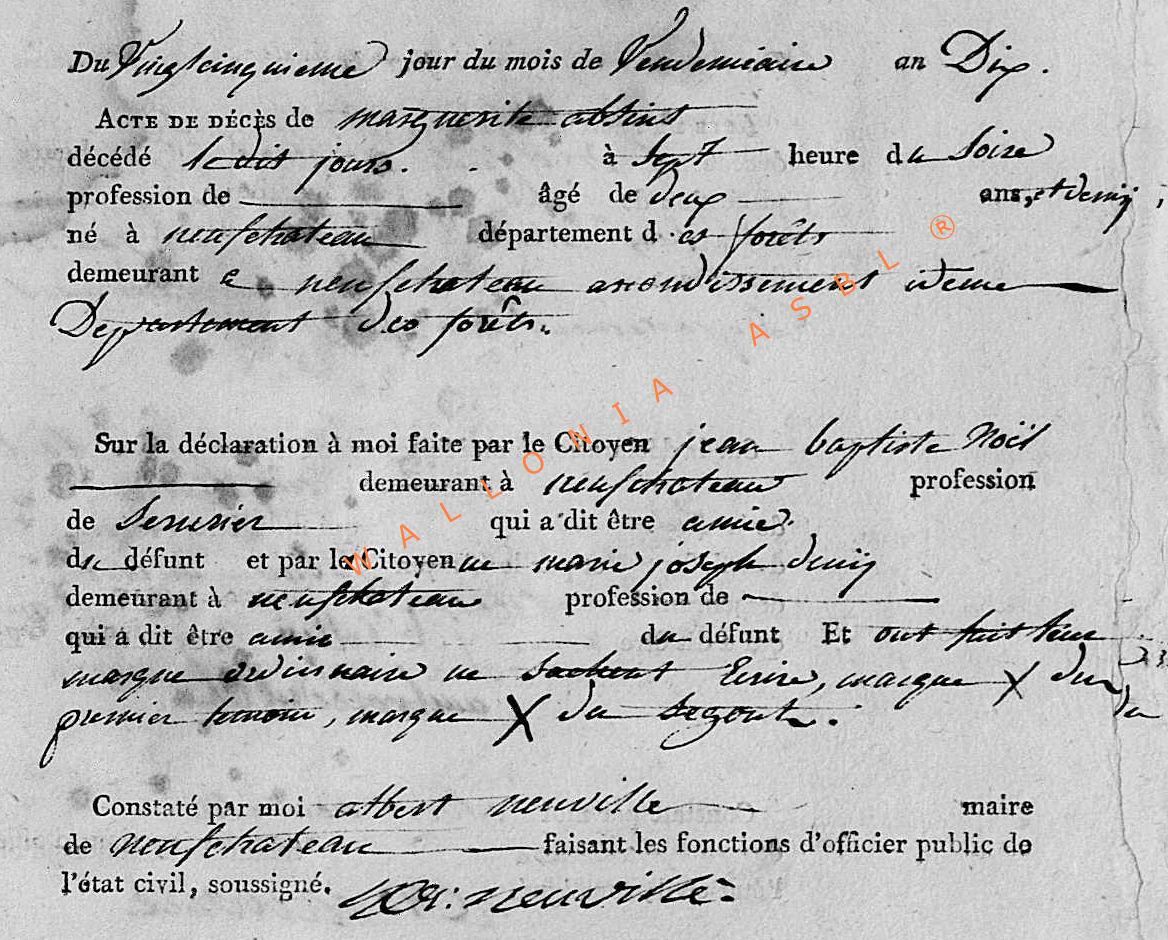 Du Vingtcinquieme jour du mois de Vendemiaire an Dix.
ACTE DE DÉCÈS de marguerite absins
décédé ledit jours. à sept heure du soire
profession de âgé de deux ans, et demij,
né à neufchateau département des forêts
demeurant a neufchateau arrondissement ideme
Departement des forêts.
Sur la déclaration à moi faite par le Citoyen jean baptiste Noël
demeurant à neufchateau profession
de serurier qui a dit être amie.
du défunt et par le Citoyenne marie joseph denij
demeurant à neufchateau profession de
qui a dit être amie du défunt Et ont fait leur
marque ordinaire ne sachent Ecrire, marque X du
premier temoin, marque X du segont. du
Constaté par moi albert neuville maire
de neufchateau faisant les fonctions d'officier public de
l'état civil, soussigné. neuville
WALLONIA ASBL ®